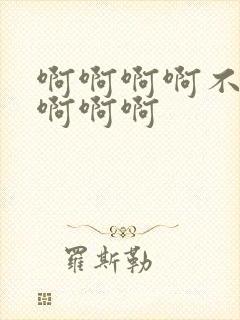 啊啊啊啊不
啊啊啊
羅斯勒